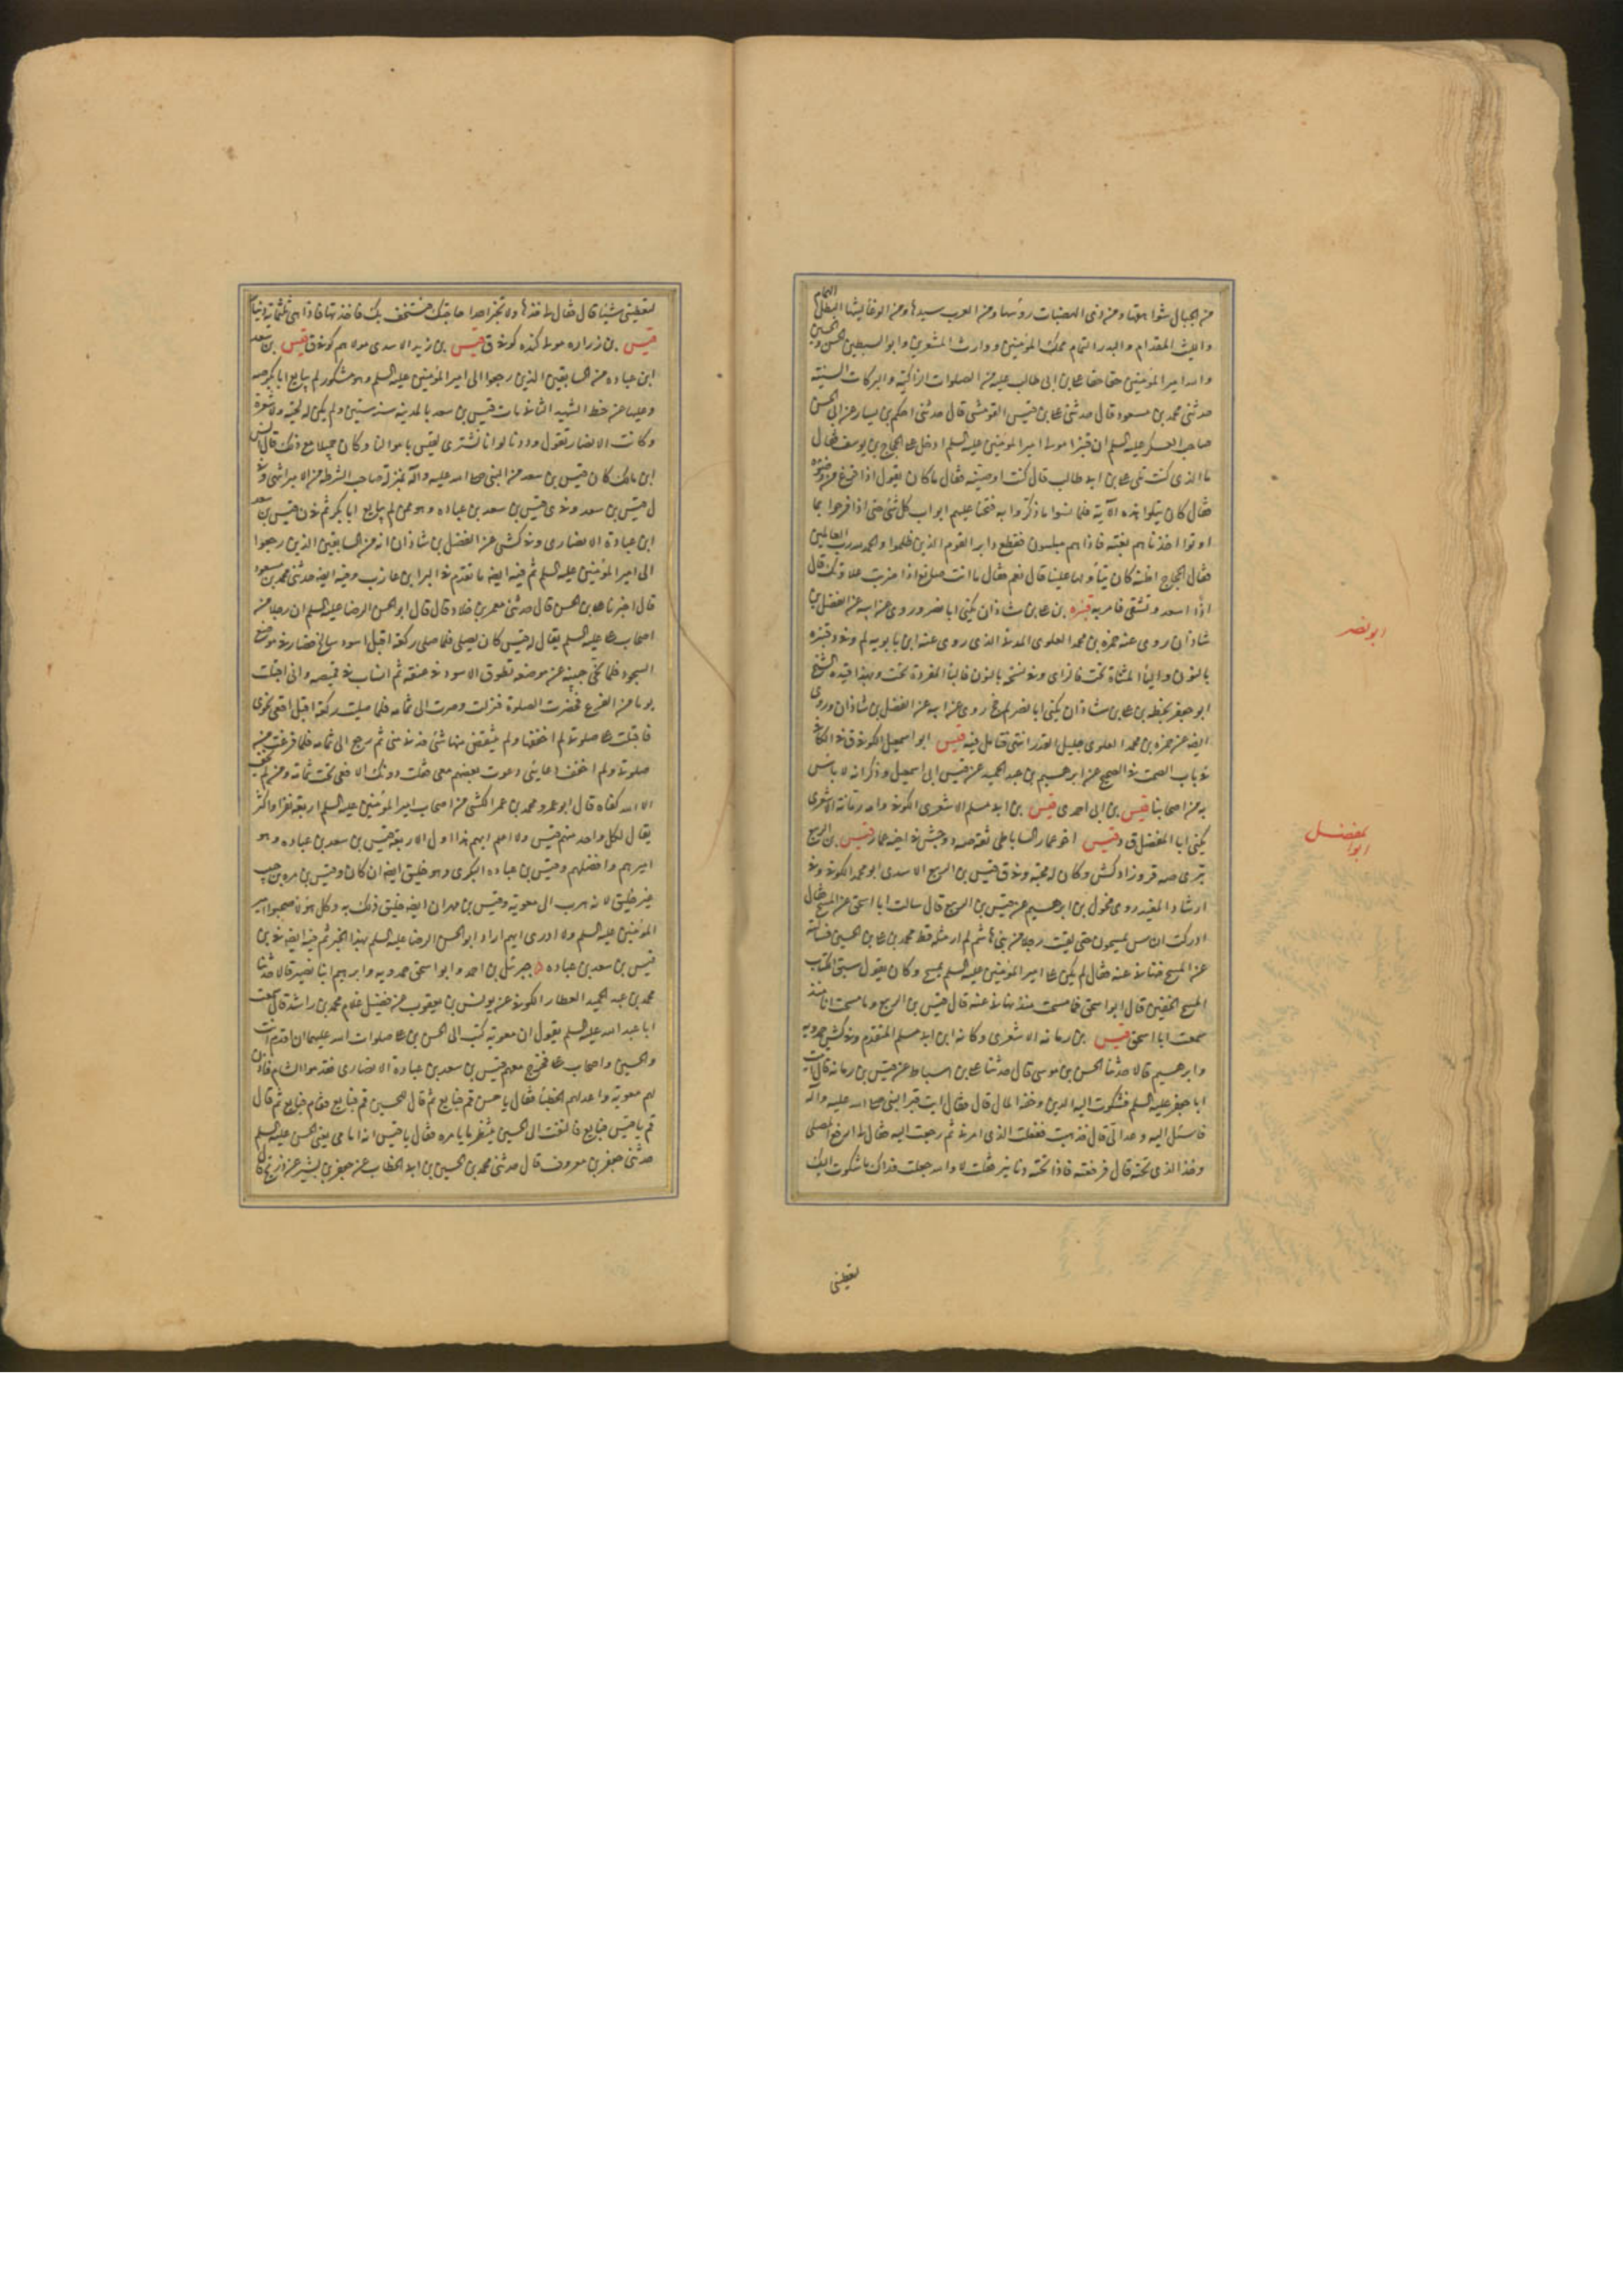 من الجبال شوامخها ومن ذي الهضبات رؤسها ومن العرب سيدها ومن الوغا ليثها البطل الهمام
والليث المقدام والبدر التمام محك المؤمنين ووارث المشعرين وابو السبطين الحسن والحسين
والله امير المؤمنين حقا حقا علي بن ابي طالب عليه من الصلوات الزاكية والبركات السنية
حدثني محمد بن مسعود قال حدثني علي بن قيس القومشي قال حدثني احكم بن يسار عن ابي الحسن
صاحب العسكر عليه السلم ان قنبرا مولى امير المؤمنين عليه السلم ادخل على الحجاج بن يوسف فقال
ما الذي كنت تلي علي بن ابي طالب قال كنت اوضيه فقال ما كان يقول اذا فرغ من وضوئه
فقال كان يتلوا هذه الآية فلما نسوا ما ذكروا به فتحنا عليهم ابواب كل شئ حتى اذا فرحوا بما
اوتوا اخذناهم بغتة فاذا هم مبلسون فقطع دابر القوم الذين ظلموا والحمد لله رب العالمين
فقال الحجاج اظنه كان يتأولها علينا قال نعم فقال ما انت صانع اذا ضربت علاوتك قال
اذا اسعد وتشقى فامر به قنبره بن علي بن شاذان يكنى ابا نصر وروى عن ابيه عن الفضل بن
شاذان روى عنه حمزه بن محمد العلوي الذي روى عنه ابن بابويه لم وفي د قنبره
بالنون والياء المثناة تحت فالزاى وفي نسخة بالنون فالباء المفردة تحت وبهذا قيده الشيخ
ابو جعفر بخطه بن علي بن شاذان يكنى ابا نصر لم جخ روى عن ابيه عن الفضل بن شاذان وروى
ايضا عن حمزه بن محمد العلوي جليل القدر انتهى فتأمل فيه قيس ابو اسمعيل الكوفي ق في الكافي
في باب الصمت في الصحيح عن ابرهيم بن عبد الحميد عن قيس ابي اسمعيل وذكر انه لا باس
به من اصحابنا قيس بن ابي احمد ى قيس بن ابي مسلم الاشعري الكوفي واسم رمانة الاشعري
يكنى ابا المفضل ق د قيس اخو عمار الساباطي ثقة صه د وجش في اخيه عمار قيس بن الربيع
بتري صه قر وزاد كش وكان له محبة وفي ق قيس بن الربيع الاسدي ابو محمد الكوفي وفي
ارشاد المفيد روى مخول بن ابراهيم عن قيس بن الربيع قال سالت ابا اسحق عن المسح فقال
ادركت الناس يمسحون حتى لقيت رجلا من بني هاشم لم ار مثله قط محمد بن علي بن الحسين فسالته
عن المسح فنهاني عنه فقال لم يكن علي امير المؤمنين عليه السلم يمسح وكان يقول سبق الكتاب
المسح الخفين قال ابو اسحق فما مسحت منذ نهاني عنه قال قيس بن الربيع وما مسحت انا منذ
سمعت ابا اسحق قيس بن رمانه الاشعري وكانه ابن ابي مسلم المتقدم وفي كش حمدويه
وابرهيم قالا حدثنا الحسن بن موسى قال حدثنا علي بن اسباط عن قيس بن رمانه قال اتيت
ابا جعفر عليه السلم فشكوت اليه الدين وخفة المال قال فقال ايت قبر النبي صلى الله عليه وآله
فاسئل اليه وعد الى قال فذهبت ففعلت الذي امرني ثم رجعت اليه فقال لي ارفع المصلى
وخذ الذي تحته قال فرفعته فاذا تحته دنانير فقلت لا والله جعلت فداك ما شكوت اليك
لتعطيني
ابو نصر
ابو المفضل
لتعطيني شيئا قال فقال لي خذها ولا تخبر احدا حاجتك فيستخف بك فاخذتها فاذا هي ثلثمائة دينار
قيس بن زراره مولى كنده كوفي ق قيس بن زيد الاسدي مولاهم كوفي ق قيس بن سعد
ابن عباده من السابقين الذين رجعوا الى امير المؤمنين عليه السلم وهو مشكور لم يبايع ابا بكر صه
وعليها عن خط الشهيد الثاني مات قيس بن سعد بالمدينه سنة ستين ولم يكن له لحية ولا شعرة
وكانت الانصار تقول وددنا لو انا نشتري لقيس باموالنا وكان جميلا مع ذلك قال انس
ابن مالك كان قيس بن سعد من النبي صلى الله عليه وآله بمنزلة صاحب الشرطة من الامير انتهى وفي
ل قيس بن سعد وفي ى قيس بن سعد بن عباده وهو ممن لم يبايع ابا بكر ثم في ن قيس بن سعد
ابن عبادة الانصاري وفي كشي عن الفضل بن شاذان انه من السابقين الذين رجعوا
الى امير المؤمنين عليه السلم ثم فيه ايضا ما تقدم في البرا بن عازب وفيه ايضا حدثني محمد بن مسعود
قال اخبرنا علي بن الحسن قال حدثني معمر بن خلاد قال قال ابو الحسن الرضا عليه السلم ان رجلا من
اصحاب علي عليه السلم يقال له قيس كان يصلي فلما صلى ركعة اقبل اسود سالخ فصار في موضع
السجود فلما نحى جبينه عن موضعه تطوق الاسود في عنقه ثم انساب في قميصه وانى اقبلت
يوما من الفرع فحضرت الصلوة فنزلت وصرت الى ثمامه فلما صليت ركعة اقبل افعى نحوي
فاقبلت على صلوتي لم اخففها ولم ينتقض منها شئ فدنا مني ثم رجع الى ثمامه فلما فرغت من
صلوتي ولم اخفف دعائي دعوت بعضهم معي فقلت دونك الافعى تحت ثمامة ومن لم يخف
الا الله كفاه قال ابو عمرو محمد بن عمر الكشي من اصحاب امير المؤمنين عليه السلم اربعة نفر واكثر
يقال لكل واحد منهم قيس ولا اعلم ايهم هذا اول الاربعة قيس بن سعد بن عباده وهو
اميرهم وافضلهم وقيس بن عباده البكري وهو خليق ايضا ان كان وقيس بن مره بن حبيب
غير خليق لانه هرب الى معوية وقيس بن مهران ايضا خليق ذلك به وكل هؤلا صحبوا امير
المؤمنين عليه السلم ولا ادري ايهم اراد ابو الحسن الرضا عليه السلم بهذا الخبر ثم فيه ايضا في بن
قيس بن سعد بن عباده جبرئل بن احمد وابو اسحق حمدويه وابرهيم ابنا نصير قالا حدثنا
محمد بن عبد الحميد العطار الكوفي عن يونس بن يعقوب عن فضيل غلام محمد بن راشد قال سمعت
ابا عبد الله عليه السلم يقول ان معوية كتب الى الحسن بن علي صلوات الله عليهما ان اقدم انت
والحسين واصحاب علي فخرج معهم قيس بن سعد بن عبادة الانصاري فقدموا الشام فاذن
لهم معوية واعد لهم الخطبا فقال يا حسن قم فبايع ثم قال للحسين قم فبايع فقام فبايع ثم قال
قم يا قيس فبايع فالتفت الى الحسين ينظر ما يامره فقال يا قيس انه امامي يعني الحسن عليه السلم
حدثني جعفر بن معروف قال حدثني محمد بن الحسين بن ابي الخطاب عن جعفر بن بشير عن ذريح قال